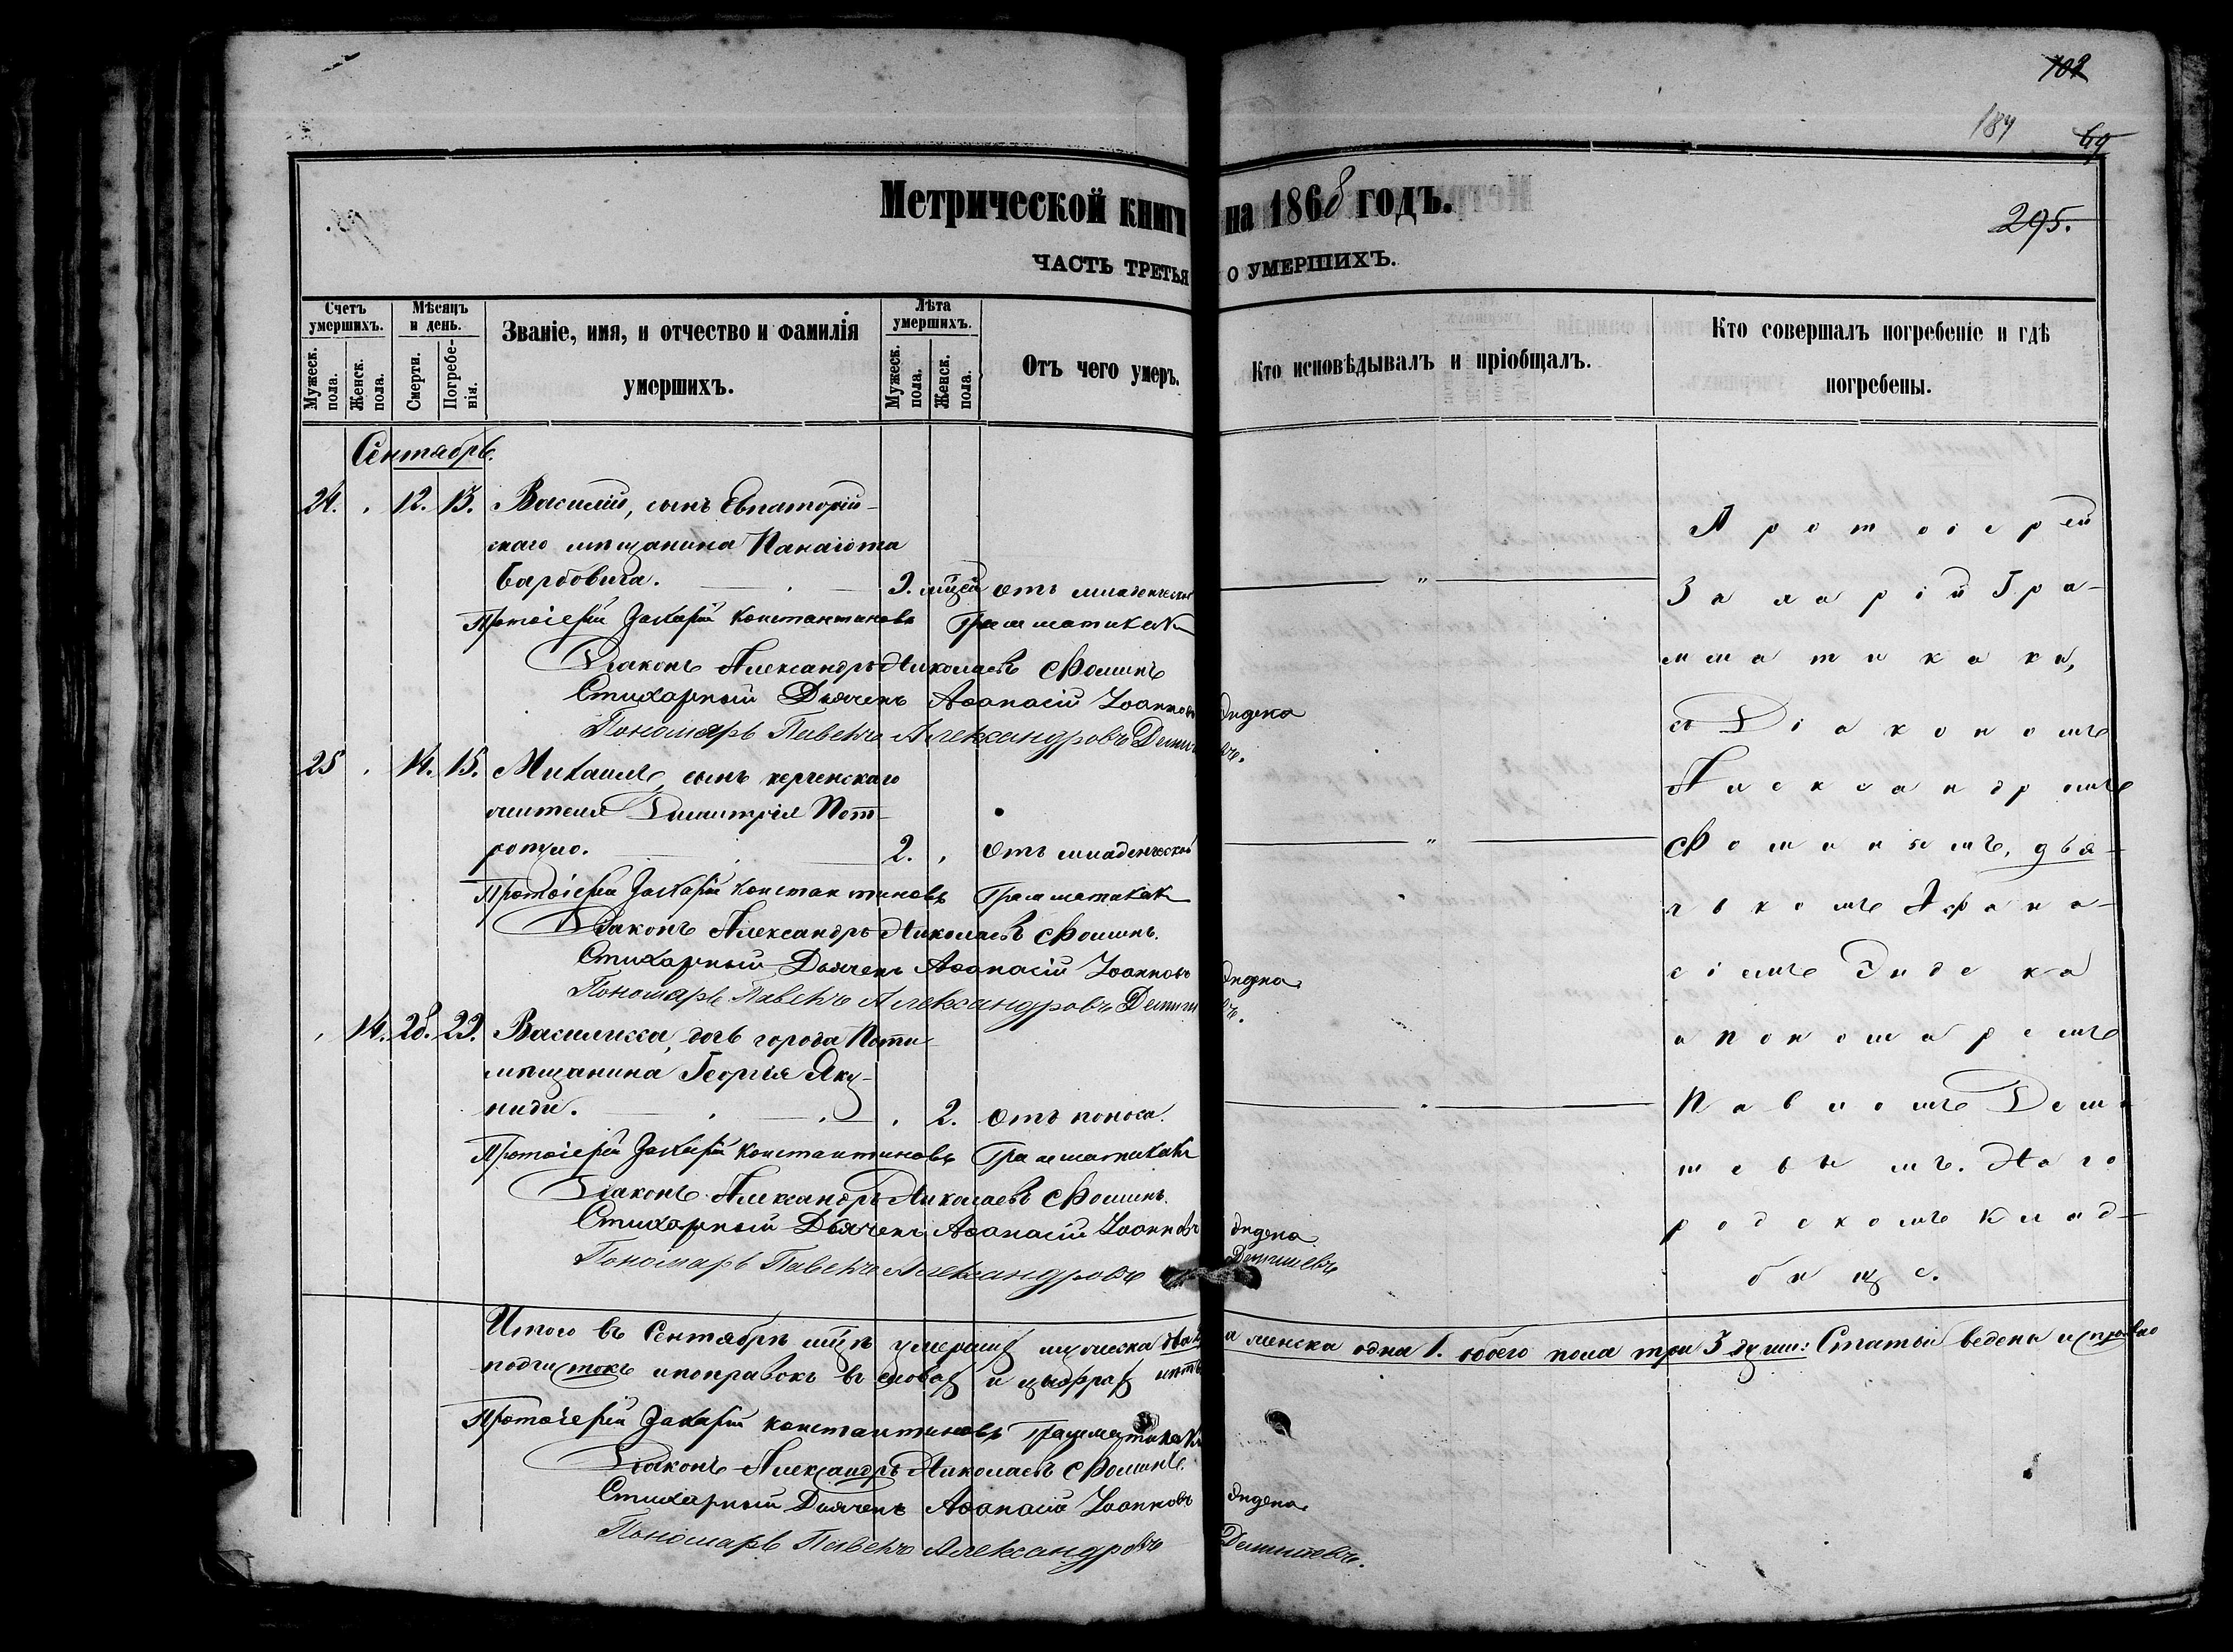 102
184
69
Метрической книги на 1868 годъ.
295.
ЧАСТЬ ТРЕТЬЯ О УМЕРШИХЪ.
Счетъ умершихъ.
Мужеск. пола.
Женск. пола.
Мѣсяцъ и день.
Смерти.
Погребенія.
Званіе, имя, и отчество и фамилія умершихъ.
Лѣта умершихъ.
Мужеск. пола.
Женск. пола.
Отъ чего умеръ.
Кто исповѣдывалъ и пріобщалъ.
Кто совершалъ погребеніе и гдѣ погребены.
Сентябрь.
24. 12. 13. Василій, сынъ Евпаторій-
скаго мѣщанина Панаіота
Барбовича. 9. мцей отъ младенческой
Протоіерей Захарій Константиновъ Грамматикаки
Діаконъ Александръ Николаевъ Фоминъ
Стихарный Дьячекъ Аѳанасій Іоанновъ Эндека
Пономарь Павелъ Александровъ
25 14. 15. Михаилъ, сынъ керченскаго
жителя Димитрія Пет-
ропуло. 2. Отъ младенческой
Протоіерей Захарій Константиновъ Грамматикаки
Діаконъ Александръ Николаевъ Фоминъ.
Стихарный Дьячекъ Аѳанасій Іоанновъ Эндека
Пономарь Павелъ Александровъ
14. 28. 29. Василисса, дочь города Поти
мѣщанина Георгія Яку-
ниди. 2. Отъ поноса.
Протоіерей Захарій Константиновъ Грамматикаки
Діаконъ Александръ Николаевъ Фоминъ.
Стихарный Дьячекъ Аѳанасій Іоанновъ Эндека
Пономарь Павелъ Александровъ
Протоіерей
Захарій Гра-
мматикаки,
съ Діакономъ
Александромъ
Фоминымъ, дья-
чкомъ Афана-
сіемъ Эндека
и пономаремъ
Павломъ Деми-
шевымъ. На го
родскомъ клад-
бище.
Итого въ Сентябрѣ мцѣ умершихъ мужеска два женска одна 1. обоего пола три 3 души: Статьи ведены исправно
подчистокъ и поправокъ въ словахъ и цыфрахъ нѣтъ
Протоіерей Захарій Константиновъ Грамматикаки
Діаконъ Александръ Николаевъ Фоминъ.
Стихарный Дьячекъ Аѳанасій Іоанновъ Эндека
Пономарь Павелъ Александровъ